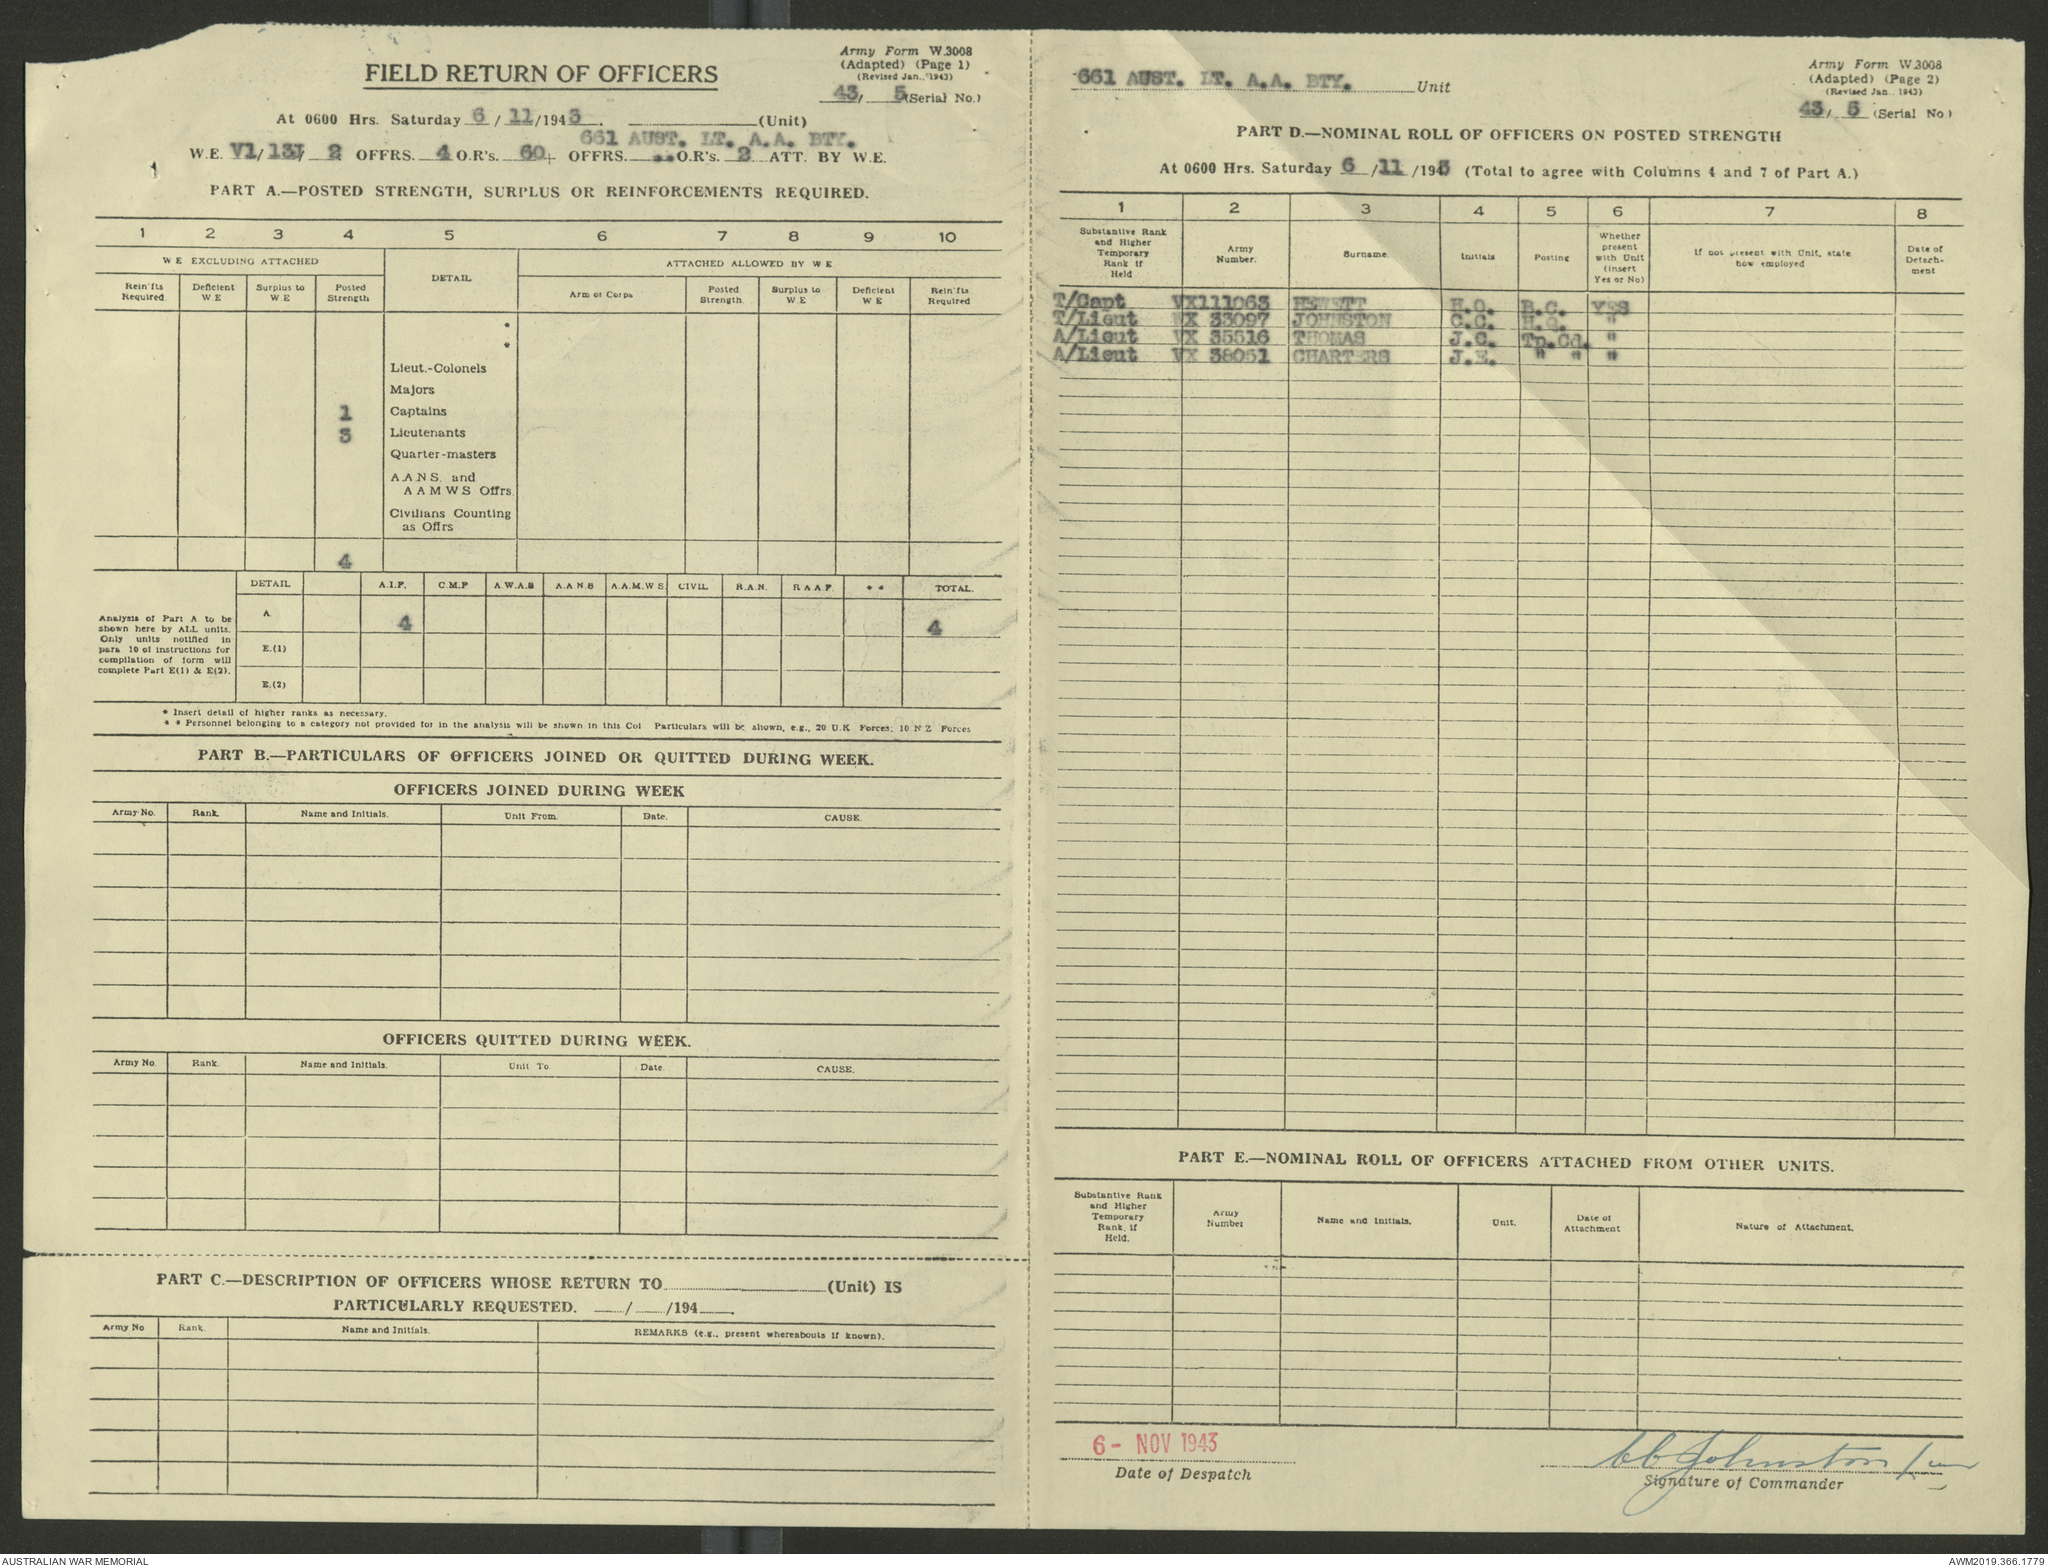 Army Form W.3008
(Adapted) (Page 1)
(Revised Jan., 1943)
FIELD RETURN OF OFFICERS
43/ 5 (Serial No.)
At 0600 Hrs. Saturday 6 / 11 /1943. (Unit)
661 AUST. LT. A.A. BTY.
W.E. V1/ 131/ 2 OFFRS. 4 O.R's. 60 + OFFRS. .. O.R's. 2 ATT. BY W.E.
PART A.—POSTED STRENGTH, SURPLUS OR REINFORCEMENTS REQUIRED.
1 2 3 4 5 6 7 8 9 10
W E EXCLUDING ATTACHED
DETAIL
ATTACHED ALLOWED BY W E
Rein'fts Required.
Deficient W.E
Surplus to W.E
Posted Strength
Arm or Corps
Posted Strength.
Surplus to W.E
Deficient W E
Rein'fts Required
*
*
Lieut.-Colonels
Majors
1 Captains
3 Lieutenants
Quarter-masters
A.A.N.S. and
A A M W S Offrs.
Civilians Counting
as Offrs
4
DETAIL A.I.F. C.M.F A.W.A.S A.A.N.S A.A.M.W S. CIVIL R.A.N. R A A F * * TOTAL.
Analysis of Part A to be
shown here by ALL units.
Only units notified in
para 10 of instructions for
compilation of form will
complete Part E(1) & E(2).
A 4 4
E.(1)
E.(2)
* Insert detail of higher ranks as necessary.
* * Personnel belonging to a category not provided for in the analysis will be shown in this Col Particulars will be shown, e.g., 20 U.K Forces; 10 N Z Forces
PART B.—PARTICULARS OF OFFICERS JOINED OR QUITTED DURING WEEK.
OFFICERS JOINED DURING WEEK
Army No. Rank. Name and Initials. Unit From. Date. CAUSE.
OFFICERS QUITTED DURING WEEK.
Army No. Rank. Name and Initials. Unit To Date. CAUSE.
PART C.—DESCRIPTION OF OFFICERS WHOSE RETURN TO (Unit) IS
PARTICULARLY REQUESTED. / /194 .
Army No Rank. Name and Initials. REMARKS (e.g., present whereabouts if known).
661 AUST. LT. A.A. BTY. Unit
Army Form W.3008
(Adapted) (Page 2)
(Revised Jan. 1943)
43/ 5 (Serial No)
PART D.—NOMINAL ROLL OF OFFICERS ON POSTED STRENGTH
At 0600 Hrs. Saturday 6 /11 /1943 (Total to agree with Columns 4 and 7 of Part A.)
1 2 3 4 5 6 7 8
Substantive Rank and Higher Temporary Rank if Held
Army Number.
Surname.
Initials
Posting
Whether present with Unit (insert Yes or No)
If not present with Unit, state how employed
Date of Detach-ment
T/Capt VX111063 HEWETT H.O. B.C. YES
T/Lieut 33097 JOHNSTON C.C. H.Q. "
A/Lieut VX 35516 THOMAS J.C. Tp.Cd. "
A/Lieut VX 38051 CHARTERS J.E. " " "
PART E.—NOMINAL ROLL OF OFFICERS ATTACHED FROM OTHER UNITS.
Substantive Rank and Higher Temporary Rank, if Held.
Army Number
Name and Initials.
Unit.
Date of Attachment
Nature of Attachment.
6 - NOV 1943
Date of Despatch
CC Johnston
Signature of Commander
AUSTRALIAN WAR MEMORIAL
AWM2019.366.1779